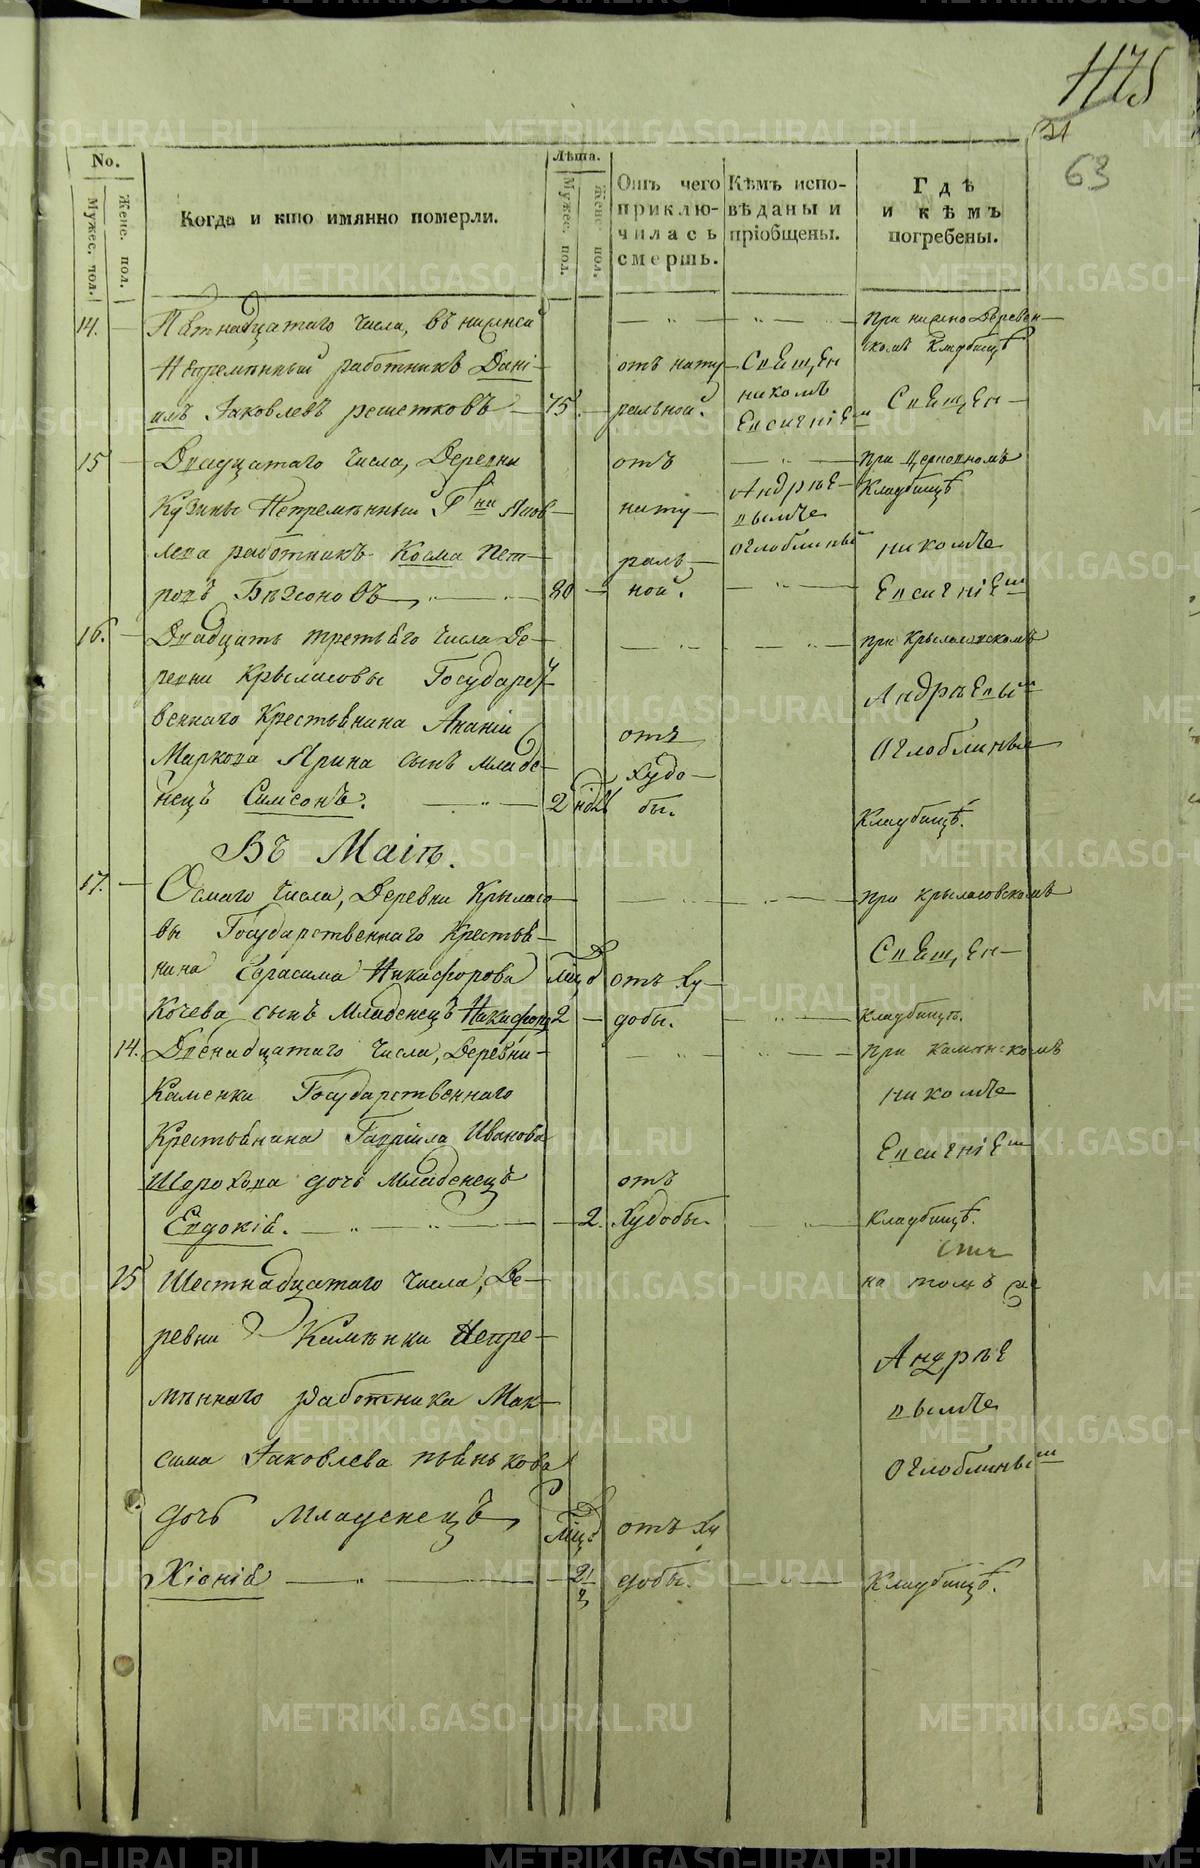 1175
51
63
No.
Мужес. пол.
Женс. пол.
Когда и кто имянно померли.
Лѣта.
Мужес. пол.
Женс. пол.
Отъ чего приклю-чилась смерть.
Кѣмъ испо-вѣданы и пріобщены.
Гдѣ и кѣмъ погребены.
14. Пятнадцатаго числа,
Непремѣнный работникъ Дані-
илъ Яковлевъ Решетковъ 75
отъ нату-
ральной.
Священ
никомъ
Евсигніем
Кладбищѣ
Священ
15 Двадцатаго числа, Деревни
Кузины Непремѣнный Г ни Яков-
лева работникъ Косма Пет-
ровъ 80
отъ
нату-
раль-
ной.
Андрѣе-
вымъ
Оглоблиным
при Церковномъ
Кладбищѣ
никомъ
Евсигніем
16. Двадцать третьяго числа Де-
ревни Крыласовы Государст-
веннаго Крестьянина Ананіи
Маркова Ярина сынъ младе-
нецъ Симеонъ. 2 нд.
отъ
худо-
бы.
при Крыласовскомъ
Андрѣевым
Оглоблиным
Кладбищѣ.
Въ Маіѣ.
17. Осмаго числа, Деревни Крыласо-
вы Государственнаго Крестья-
нина Герасима Никифорова
Кочева сынъ младенецъ Никифоръ 2
отъ ху-
добы.
при Крыласовскомъ
Священ
Кладбищѣ.
14. Двенадцатаго числа, Деревни
Каменки Государственнаго
Крестьянина Гавріила Иванова
Шорохова дочь младенецъ
Евдокія. 2.
отъ
худобы.
при Каменскомъ
никомъ
Евсигніем
Кладбищѣ.
15 Шестнадцатаго числа, Де-
ревни Камѣнки Непре-
мѣннаго работника Мак-
сима Яковлева Пьянькова
дочь младенецъ
Хіонія
отъ ху
добы.
на томъ же
Андрѣе
вымъ
Оглоблиным
Кладбищѣ.
METRIKI.GASO-URAL.RU